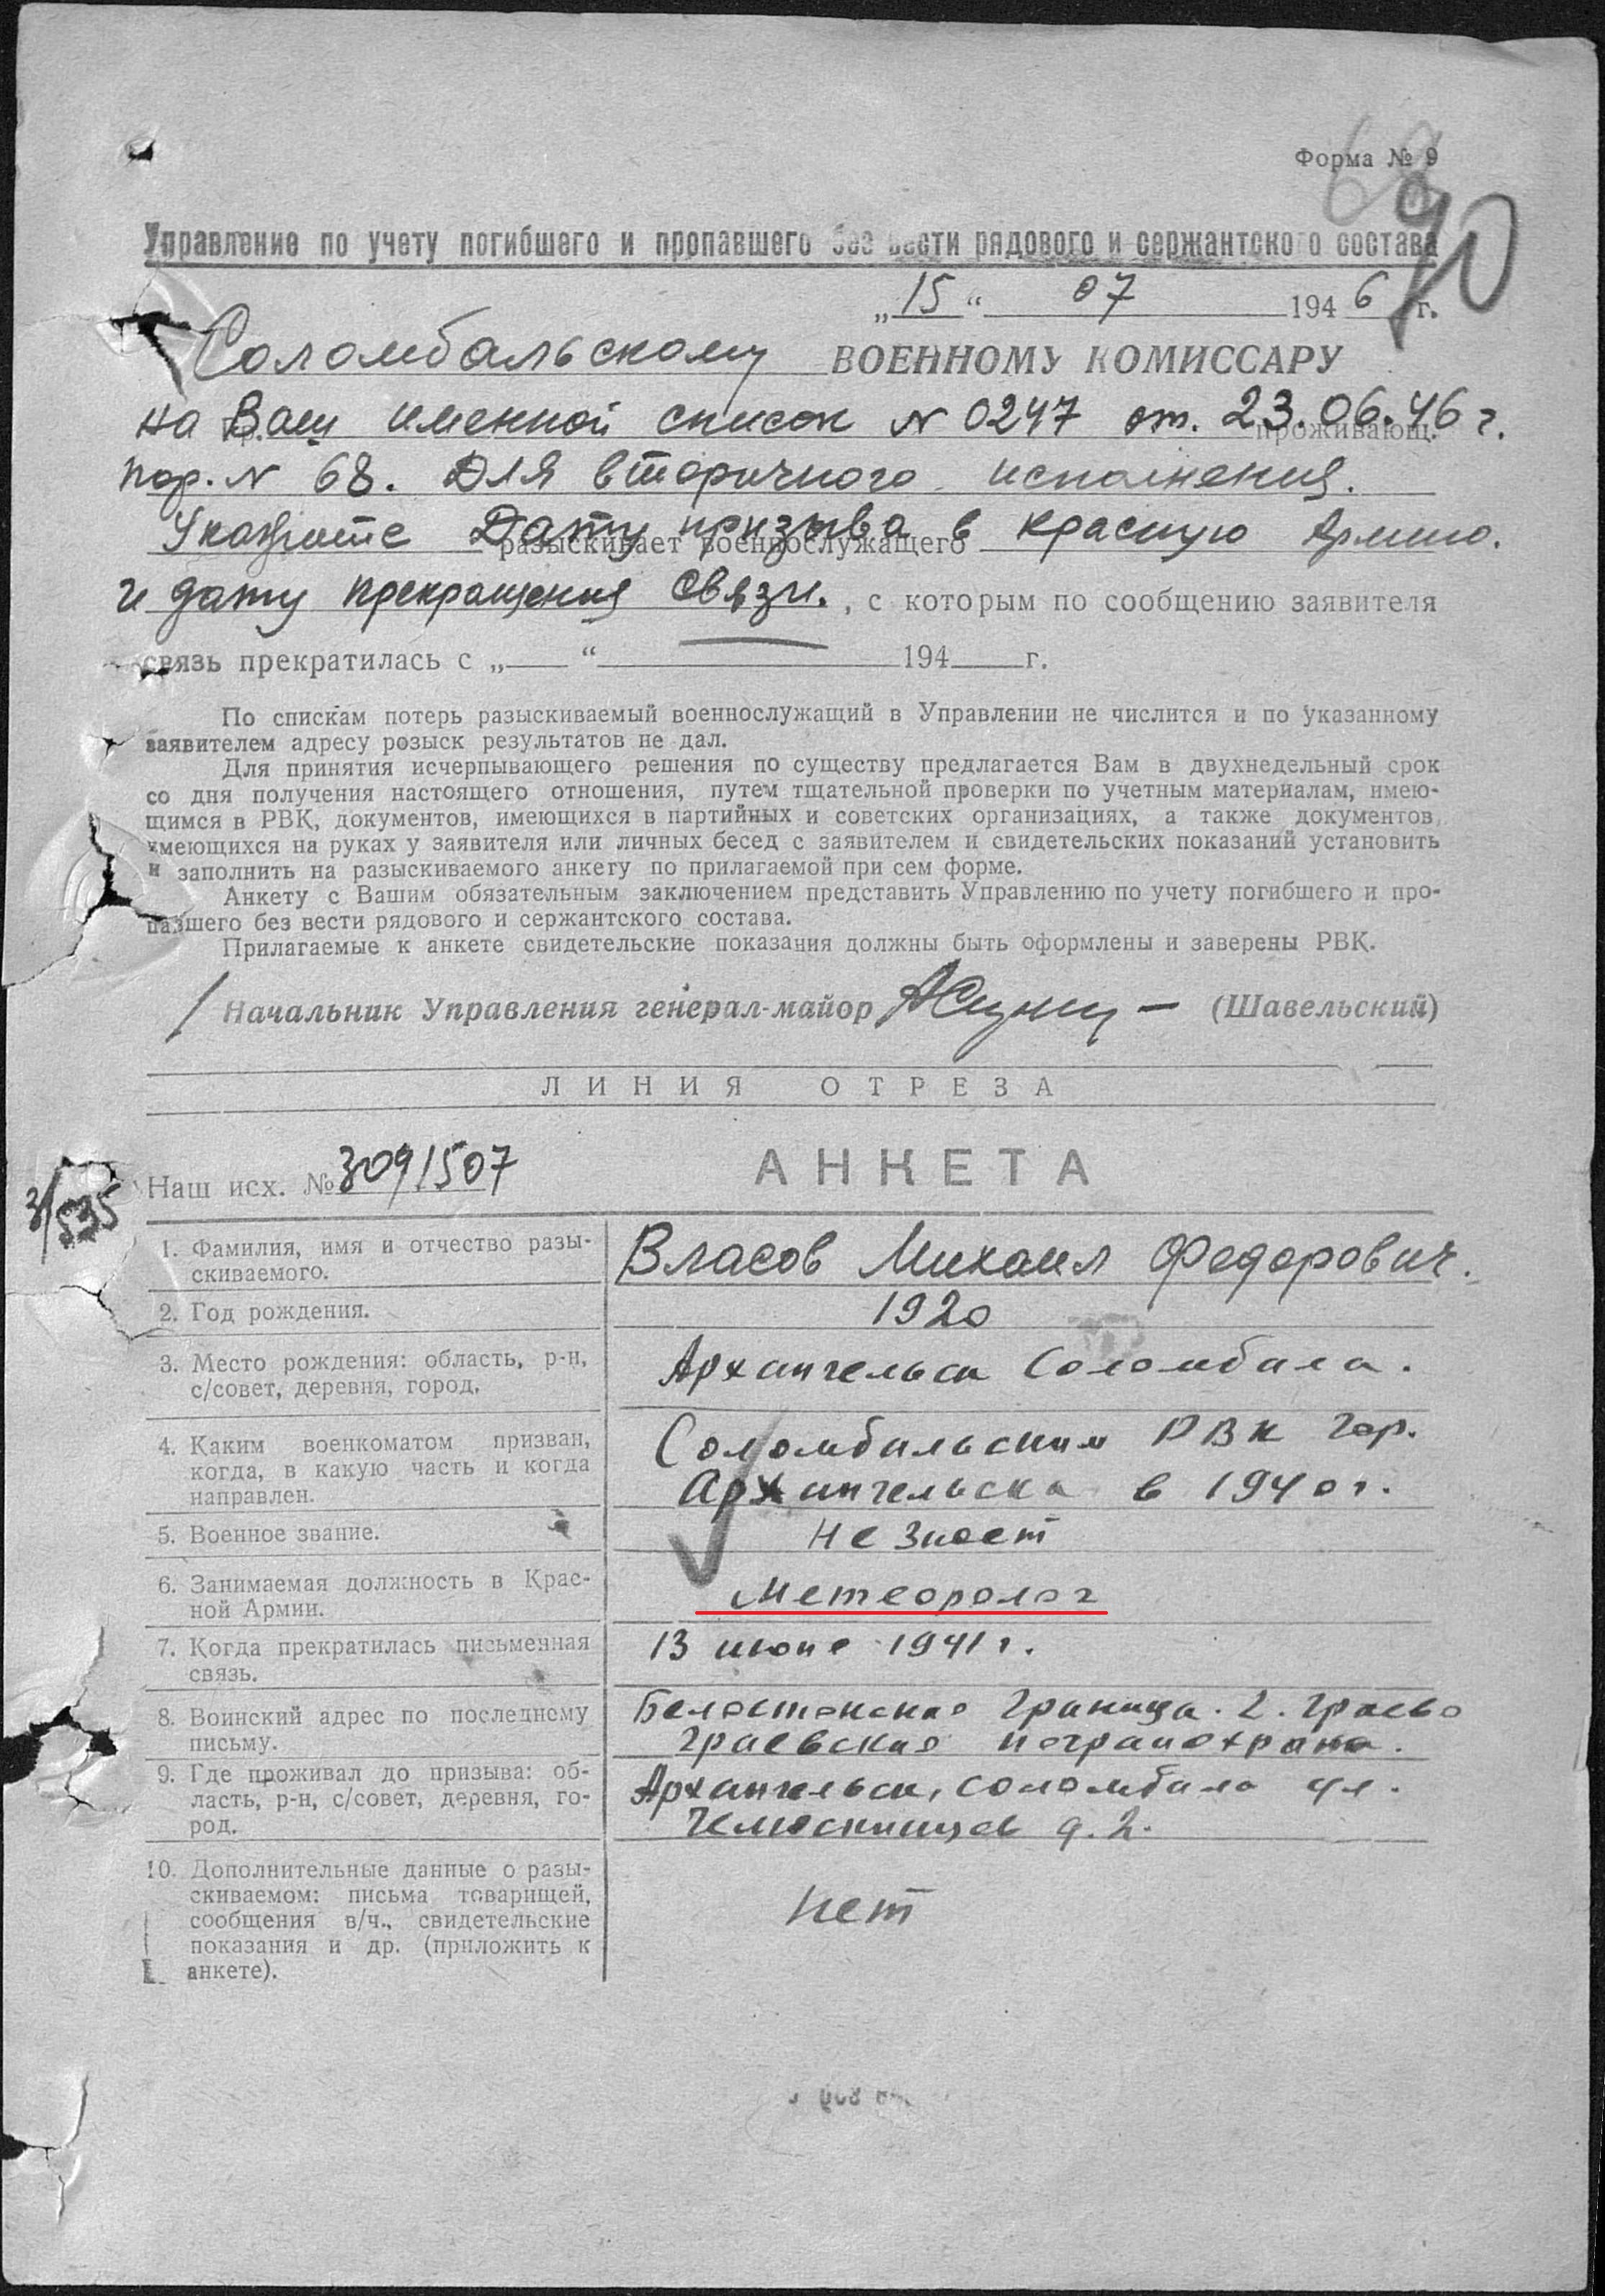 Форма № 9
Управление по учету погибшего и пропавшего без вести рядового и сержантского состава
70
„15“ 07 1946 г.
Соломбальскому ВОЕННОМУ КОМИССАРУ
на Ваш именной список № 0247 от. 23.06.46 г.
проживающ.
пор. № 68. Для вторичного исполнения.
Укажите Дату призыва в Красную Армию.
разыскивает военнослужащего
и дату прекращения связи. , с которым по сообщению заявителя
связь прекратилась с „ “ 194 г.
По спискам потерь разыскиваемый военнослужащий в Управлении не числится и по указанному
заявителем адресу розыск результатов не дал.
Для принятия исчерпывающего решения по существу предлагается Вам в двухнедельный срок
со дня получения настоящего отношения, путем тщательной проверки по учетным материалам, имею-
щимся в РВК, документов, имеющихся в партийных и советских организациях, а также документов,
имеющихся на руках у заявителя или личных бесед с заявителем и свидетельских показаний установить
и заполнить на разыскиваемого анкету по прилагаемой при сем форме.
Анкету с Вашим обязательным заключением представить Управлению по учету погибшего и про-
павшего без вести рядового и сержантского состава.
Прилагаемые к анкете свидетельские показания должны быть оформлены и заверены РВК.
Начальник Управления генерал-майор (Шавельский)
ЛИНИЯ ОТРЕЗА
Наш исх. № 3091507
АНКЕТА
3/535
1. Фамилия, имя и отчество разы-
скиваемого.
Власов Михаил Федорович.
2. Год рождения.
1920
3. Место рождения: область, р-н,
с/совет, деревня, город.
Архангельск Соломбала.
4. Каким военкоматом призван,
когда, в какую часть и когда
направлен.
Соломбальским РВК гор.
Архангельска в 1940 г.
5. Военное звание.
Не знает
6. Занимаемая должность в Крас-
ной Армии.
Метеоролог
7. Когда прекратилась письменная
связь.
13 июня 1941 г.
8. Воинский адрес по последнему
письму.
Белостокская граница. г. Граево
Граевская погранохрана.
9. Где проживал до призыва: об-
ласть, р-н, с/совет, деревня, го-
род.
Архангельск, Соломбала ул.
Челюскинцев д. 2.
10. Дополнительные данные о разы-
скиваемом: письма товарищей,
сообщения в/ч., свидетельские
показания и др. (приложить к
анкете).
Нет